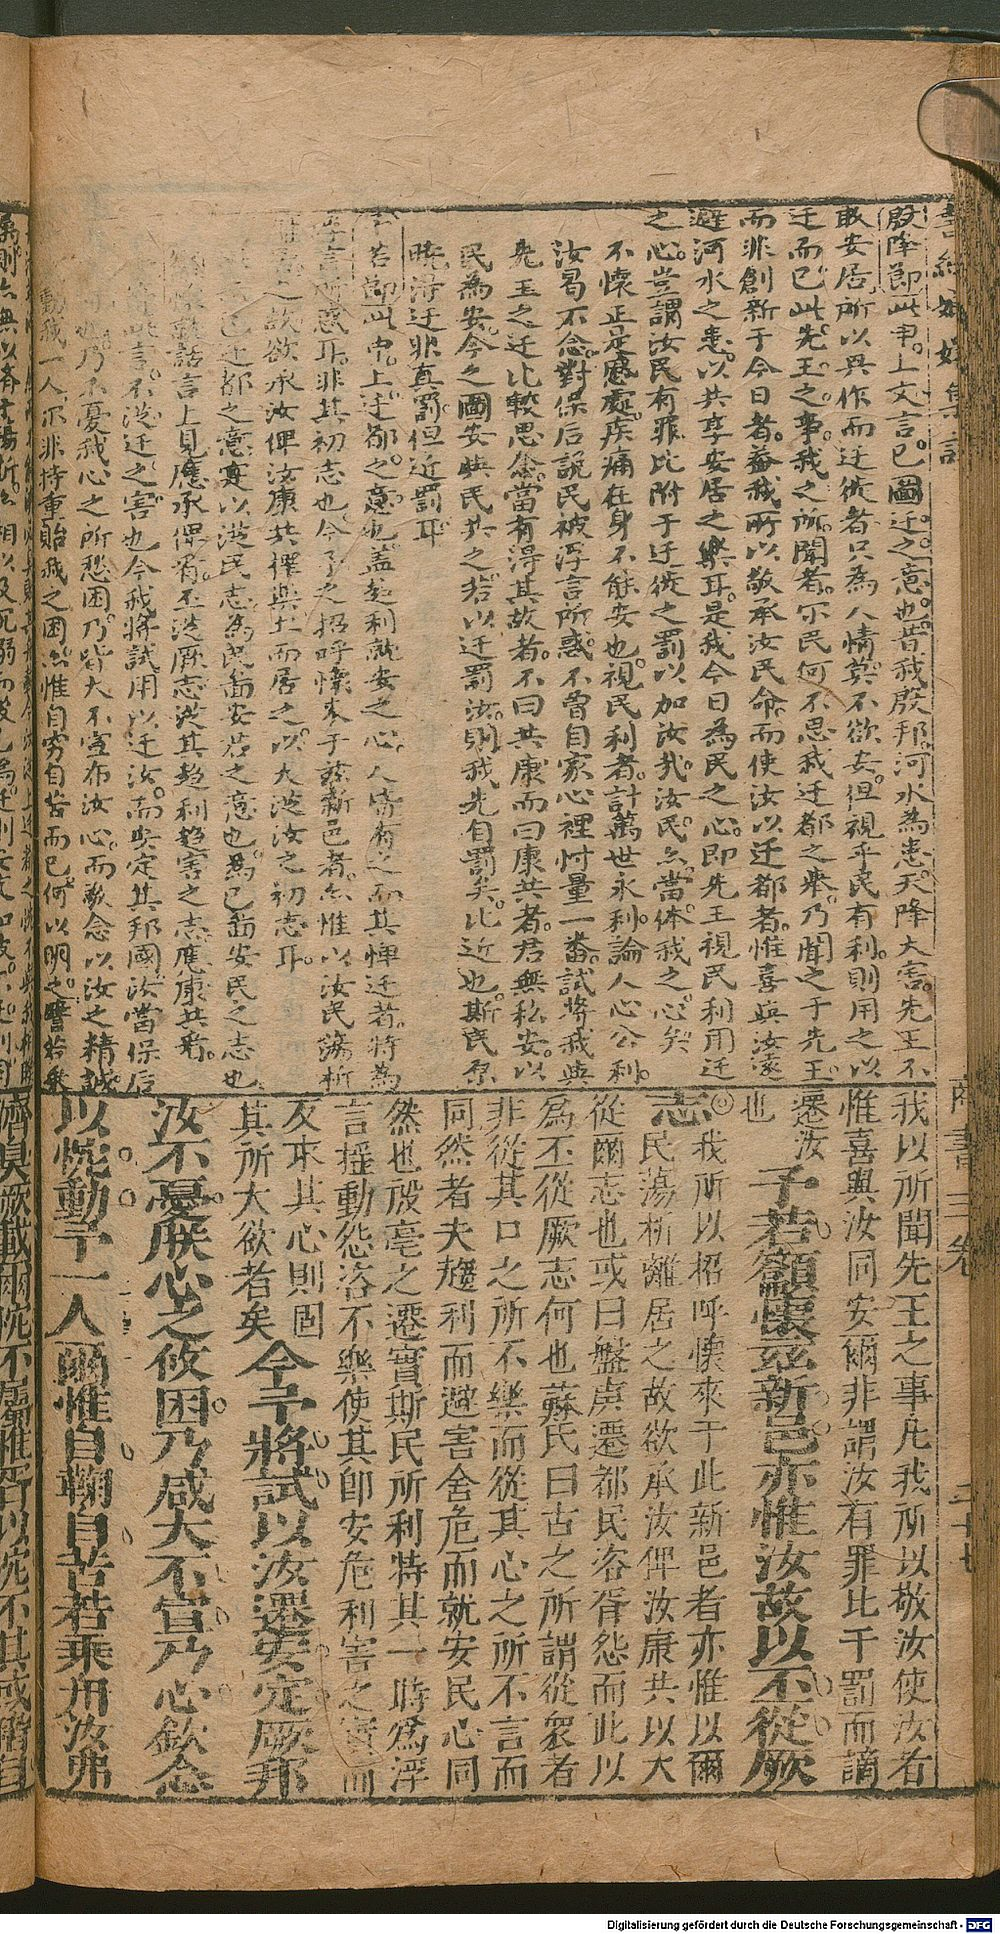 殷降節此申上文言已圖迁之意也昔我殷邦河水為患天降大害先王不
敢安居所以興作而迁徙者只為人情莫不欲安但視乎民有利則用之以
迁而已此先王之事我之所聞者尔民何不思我迁都之舉乃聞之于先王
而非創新于今日者蓋我所以敬承汝民命而使汝以迁都者惟喜與汝遠
避河水之患以共享安居之樂耳是我今日為民之心即先王視民利用迁
之心豈謂汝民有罪比附于迁徙之罰以加汝哉汝民亦當体我之心矣
不懷正是感處疾痛在身不能安也視民利者計萬世永利論人心公利
汝曷不念對保后說民被浮言所惑不曾自家心裡忖量一番試將我與
先王之迁比較思念當有得其故者不曰共康而曰康共者君無私安以
民為安今之圖安與民共之若以迁罰汝則我先自罰矣比近也斯民原
曉得迁非真罰但近罰耳
若節此申上迁都之意也蓋趋利就安之心人皆有之而其憚迁者特為
浮言所惑耳非其初志也今予之招呼懷來于茲新邑者亦惟以汝民蕩析
之故欲承汝俾汝康共擇與土而居之以大從汝之初志耳
已迁都之意寔以從民志為民圖安若之意也為已圖安民之志也
話言上見應承俾者丕從厥志從其趋利趋害之志應康共看
此言不從迁之害也今我將試用以迁汝而安定其邦國汝當保后
乃不憂我心之所愁困乃皆大不宣布汝心而歌念以汝之精誠
動我一人尔非持重貽我之困亦惟自窮自苦而已何以明之譬若乘
商書三卷
我以所聞先王之事凡我所以敬汝使汝者
惟喜與汝同安爾非謂汝有罪比于罰而謫
遷汝
也
予若籲懷茲新邑亦惟汝故以丕從厥
志
我所以招呼懷來于此新邑者亦惟以爾
民蕩析離居之故欲承汝俾汝康共以大
從爾志也或曰盤庚遷都民咨胥怨而此以
為丕從厥志何也蘇氏曰古之所謂從眾者
非從其口之所不樂而從其心之所不言而
同然者夫趨利而避害舍危而就安民心同
然也殷亳之遷實斯民所利特其一時為浮
言搖動怨咨不樂使其即安危利害之實而
反求其心則固
其所大欲者矣
今予將試以汝遷安定厥邦
汝不憂朕心之攸困乃咸大不宣乃心欽念
以忱動予一人爾惟自鞠自苦若乘舟汝弗
Digitalisierung gefördert durch die Deutsche Forschungsgemeinschaft - DFG